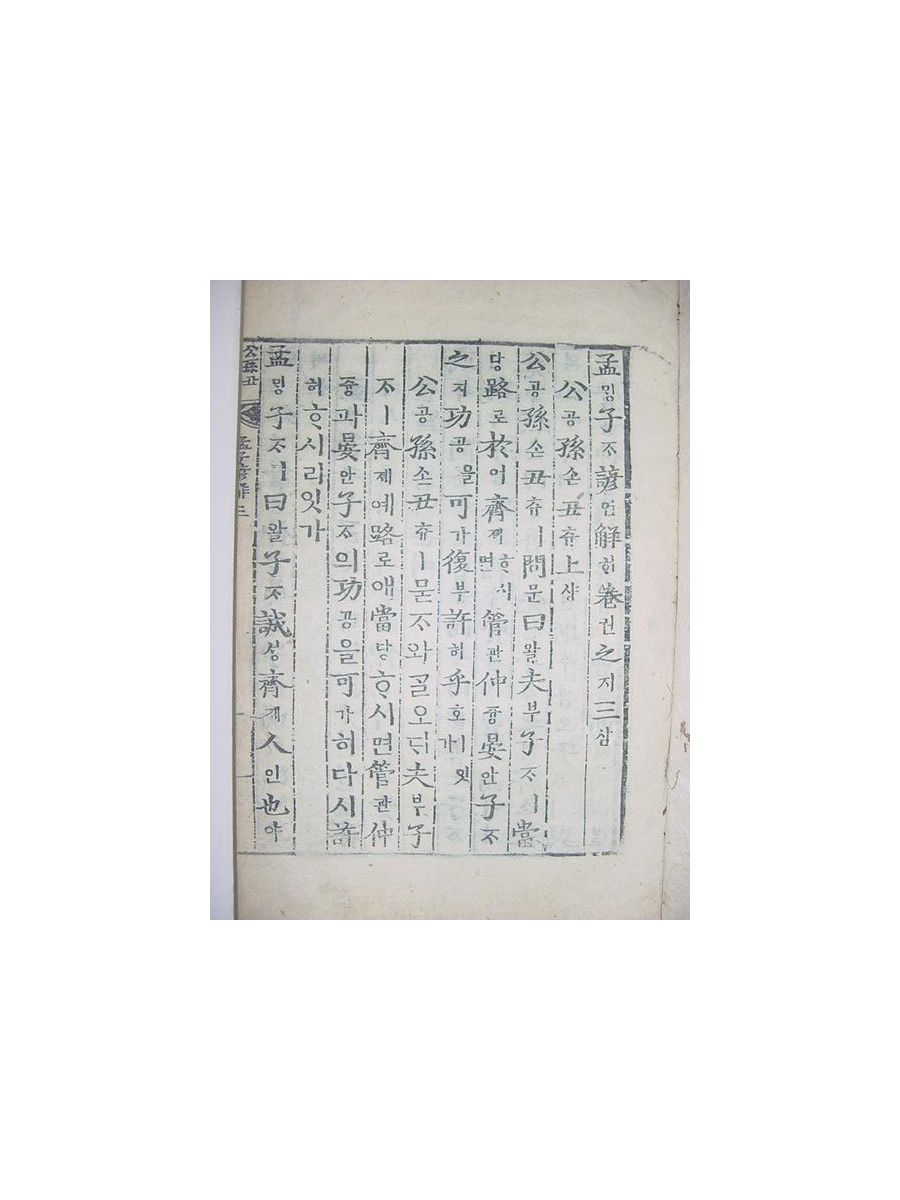 孟ᄆᆡᆼ子ᄌᆞ諺언解ᄒᆡ卷권之지三삼
公공孫손丑츄上샹
公공孫손丑츄ㅣ問문曰왈夫부子ᄌᆞㅣ當
당路로於어齊졔ᄒᆞ시면管관仲즁晏안子ᄌᆞ
之지功공을可가復부許허乎호잇가
公공孫손丑츄ㅣ묻ᄌᆞ와ᄀᆞᆯ오ᄃᆡ夫부子
ᄌᆞㅣ齊졔예路로애當당ᄒᆞ시면管관仲
즁과晏안子ᄌᆞ의功공을可가히다시許
허ᄒᆞ시리잇가
孟ᄆᆡᆼ子ᄌᆞㅣ曰왈子ᄌᆞ誠셩齊졔人인也야
公孫丑 孟子諺解 三